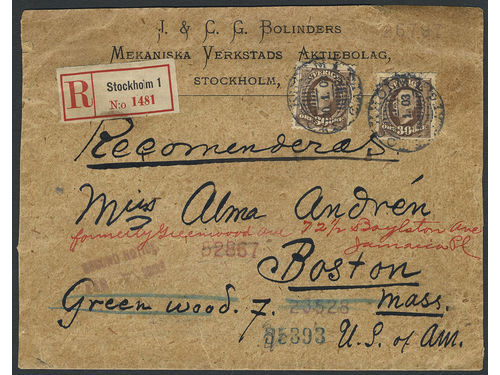 J. & C. G. Bolinders
Mekaniska Verkstads Aktiebolag,
STOCKHOLM,
R
Stockholm 1
N:o 1481
Recomenderas
Miss Alma Andrén
formerly Greenwood Ave
72½ Boylston Ave
Jamaica Pl
52867
Boston
Mass.
Greenwood. 7.
20528
85393
U. S. of Am.